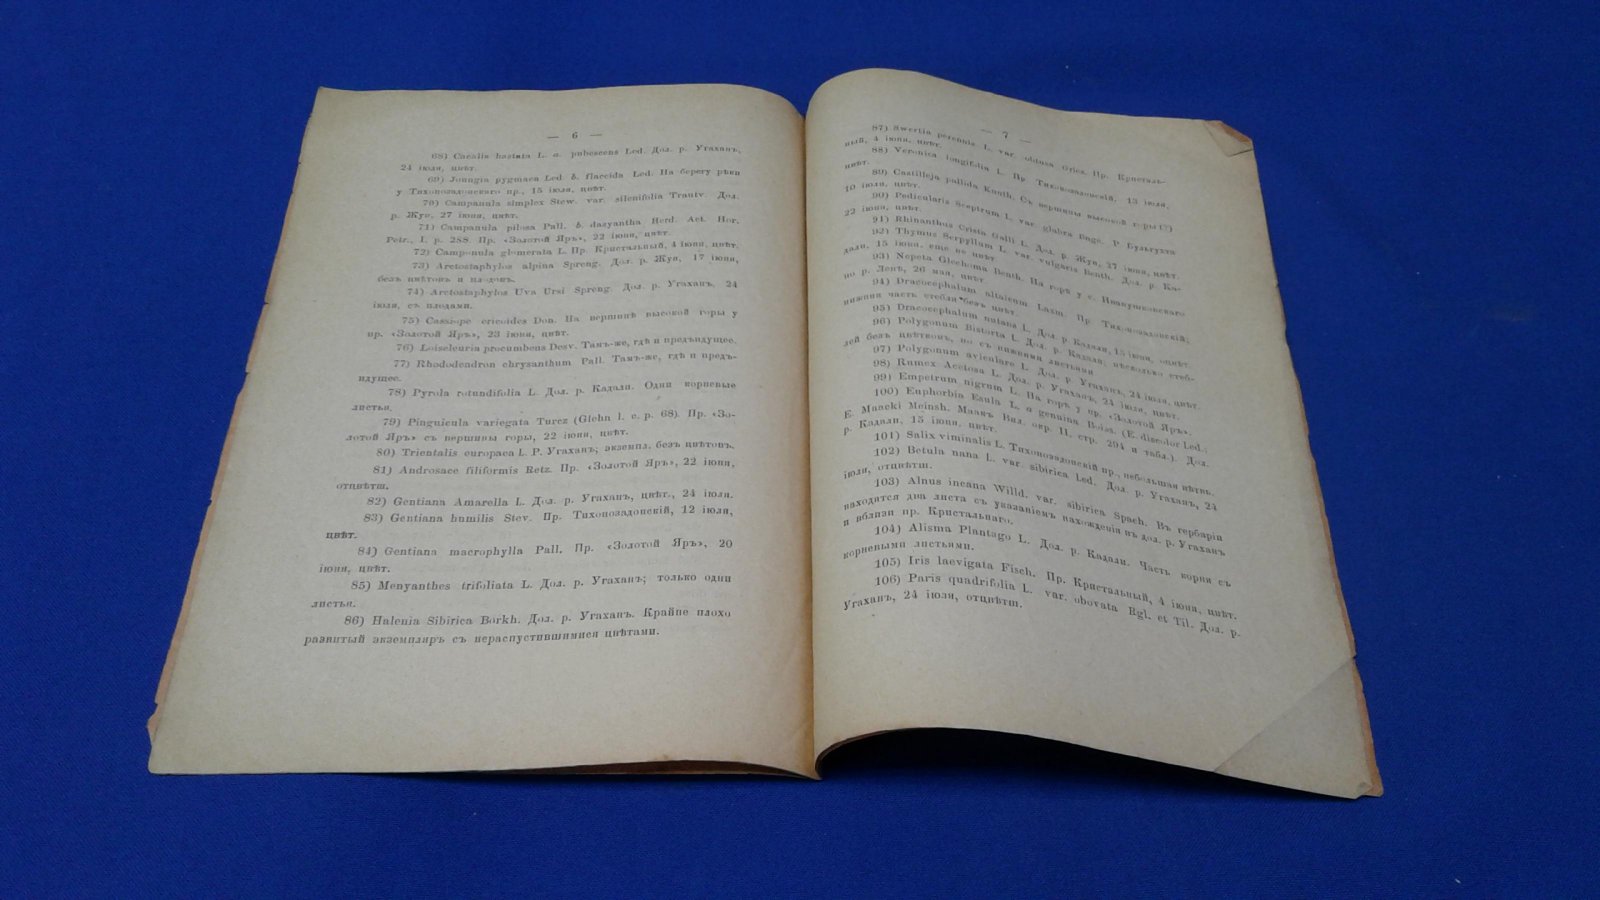 — 6 —
68) Cacalia hastata L. α. pubescens Led. Дол. р. Угаханъ,
24 iюля, цвѣт.
69) Youngia pygmaea Led. b. flaccida Led. На берегу рѣки
у Тихонозадонскаго пр., 15 iюля, цвѣт.
70) Campanula simplex Stew. var. silenifolia Trautv. Дол.
р. Жуя, 27 iюня, цвѣт.
71) Campanula pilosa Pall. b. dasyantha Herd. Act. Hor.
Petr., I. p. 288. Пр. «Золотой Яръ», 22 iюня, цвѣт.
72) Campanula glomerata L. Пр. Кристальный, 4 iюня, цвѣт.
73) Arctostaphylos alpina Spreng. Дол. р. Жуя, 17 iюня,
безъ цвѣтовъ и плодовъ.
74) Arctostaphylos Uva Ursi Spreng. Дол. р. Угаханъ, 24
iюля, съ плодами.
75) Cassiope ericoides Don. На вершинѣ высокой горы у
пр. «Золотой Яръ», 23 iюня, цвѣт.
76) Loiseleuria procumbens Desv. Тамъ-же, гдѣ и предъидущее.
77) Rhododendron chrysanthum Pall. Тамъ-же, гдѣ и предъ-
идущее.
78) Pyrola rotundifolia L. Дол. р. Кадали. Одни корневые
листья.
79) Pinguicula variegata Turcz (Glehn l. c. p. 68). Пр. «Зо-
лотой Яръ» съ вершины горы, 22 iюня, цвѣт.
80) Trientalis europaea L. Р. Угаханъ; экземпл. безъ цвѣтовъ.
81) Androsace filiformis Retz. Пр. «Золотой Яръ», 22 iюня,
отцвѣтш.
82) Gentiana Amarella L. Дол. р. Угаханъ, цвѣт., 24 iюля.
83) Gentiana humilis Stev. Пр. Тихонозадонскiй, 12 iюля,
цвѣт.
84) Gentiana macrophylla Pall. Пр. «Золотой Яръ», 20
iюня, цвѣт.
85) Menyanthes trifoliata L. Дол. р. Угаханъ; только одни
листья.
86) Halenia Sibirica Borkh. Дол. р. Угаханъ. Крайне плохо
развитый экземпляръ съ нераспустившимися цвѣтами.
— 7 —
87) Swertia perennis L. var. obtusa Gries. Пр. Кристаль-
ный, 4 iюня, цвѣт.
88) Veronica longifolia L. Пр. Тихонозадонскiй, 13 iюля,
цвѣт.
89) Castilleja pallida Kunth. Съ вершины высокой горы (?)
10 iюля, цвѣт.
90) Pedicularis Sceptrum L. var. glabra Bnge. Р. Бульгухта
22 iюня, цвѣт.
91) Rhinanthus Crista Galli L. Дол. р. Жуя, 27 iюня, цвѣт.
92) Thymus Serpyllum L. var. vulgaris Benth. Дол. р. Ка-
дали, 15 iюня, еще не цвѣт.
93) Nepeta Glechoma Benth. На горѣ у с. Иванушковскаго
по р. Ленѣ, 26 мая, цвѣт.
94) Dracocephalum altaiense Laxm. Пр. Тихонозадонскiй;
нижняя часть стебля безъ цвѣт.
95) Dracocephalum nutans L. Дол. р. Кадали, 15 iюня, отцвѣт.
96) Polygonum Bistorta L. Дол. р. Кадали; нѣсколько стеб-
лей безъ цвѣтковъ, но съ нижними листьями
97) Polygonum aviculare L. Дол. р. Угаханъ, 24 iюля, цвѣт.
98) Rumex Acetosa L. Дол. р. Угаханъ, 24 iюля, цвѣт.
99) Empetrum nigrum L. На горѣ у пр. «Золотой Яръ».
100) Euphorbia Esula L. α genuina Boiss. (E. discolor Led.;
E. Maacki Meinsh. Маакъ Вил. окр. II, стр. 294 и табл.). Дол.
р. Кадали, 15 iюня, цвѣт.
101) Salix viminalis L. Тихонозадонскiй пр., небольшая вѣтвь.
102) Betula nana L. var. sibirica Led. Дол. р. Угаханъ, 24
iюля, отцвѣтш.
103) Alnus incana Willd. var. sibirica Spach. Въ гербарiи
находятся два листа съ указанiемъ нахожденiя въ дол. р. Угаханъ
и вблизи пр. Кристальнаго.
104) Alisma Plantago L. Дол. р. Кадали. Часть корня съ
корневыми листьями.
105) Iris laevigata Fisch. Пр. Кристальный, 4 iюня, цвѣт.
106) Paris quadrifolia L. var. obovata Rgl. et Til. Дол. р.
Угаханъ, 24 iюля, отцвѣтш.